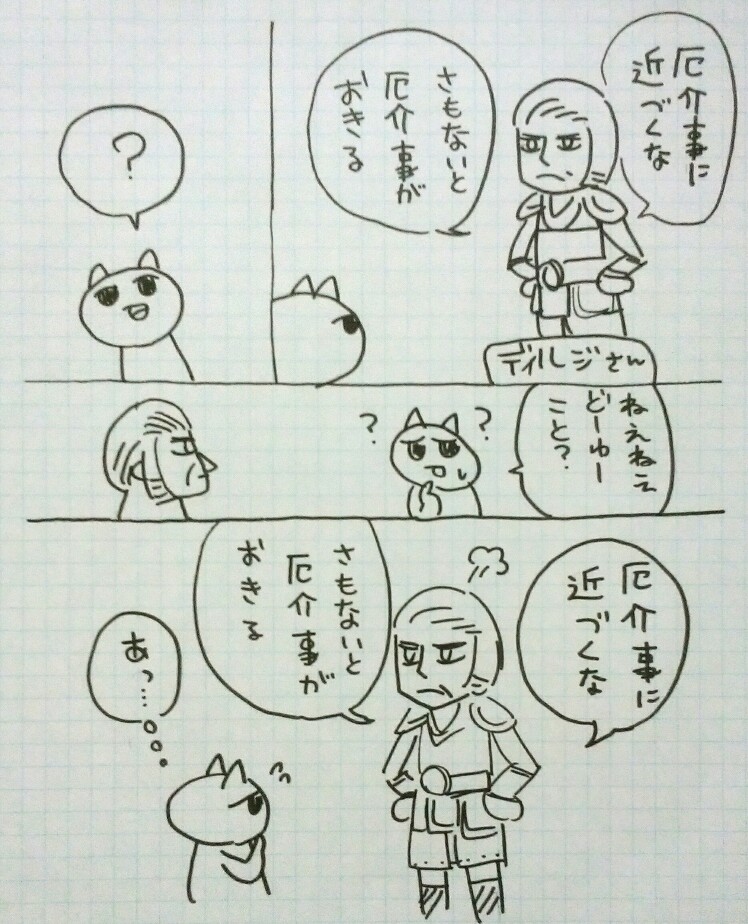 厄介事に
近づくな
さもないと
厄介事が
おきる
ディルジさん
?
ねえねえ
どーゆー
こと?
?
?
厄介事に
近づくな
さもないと
厄介事が
おきる
あっ…